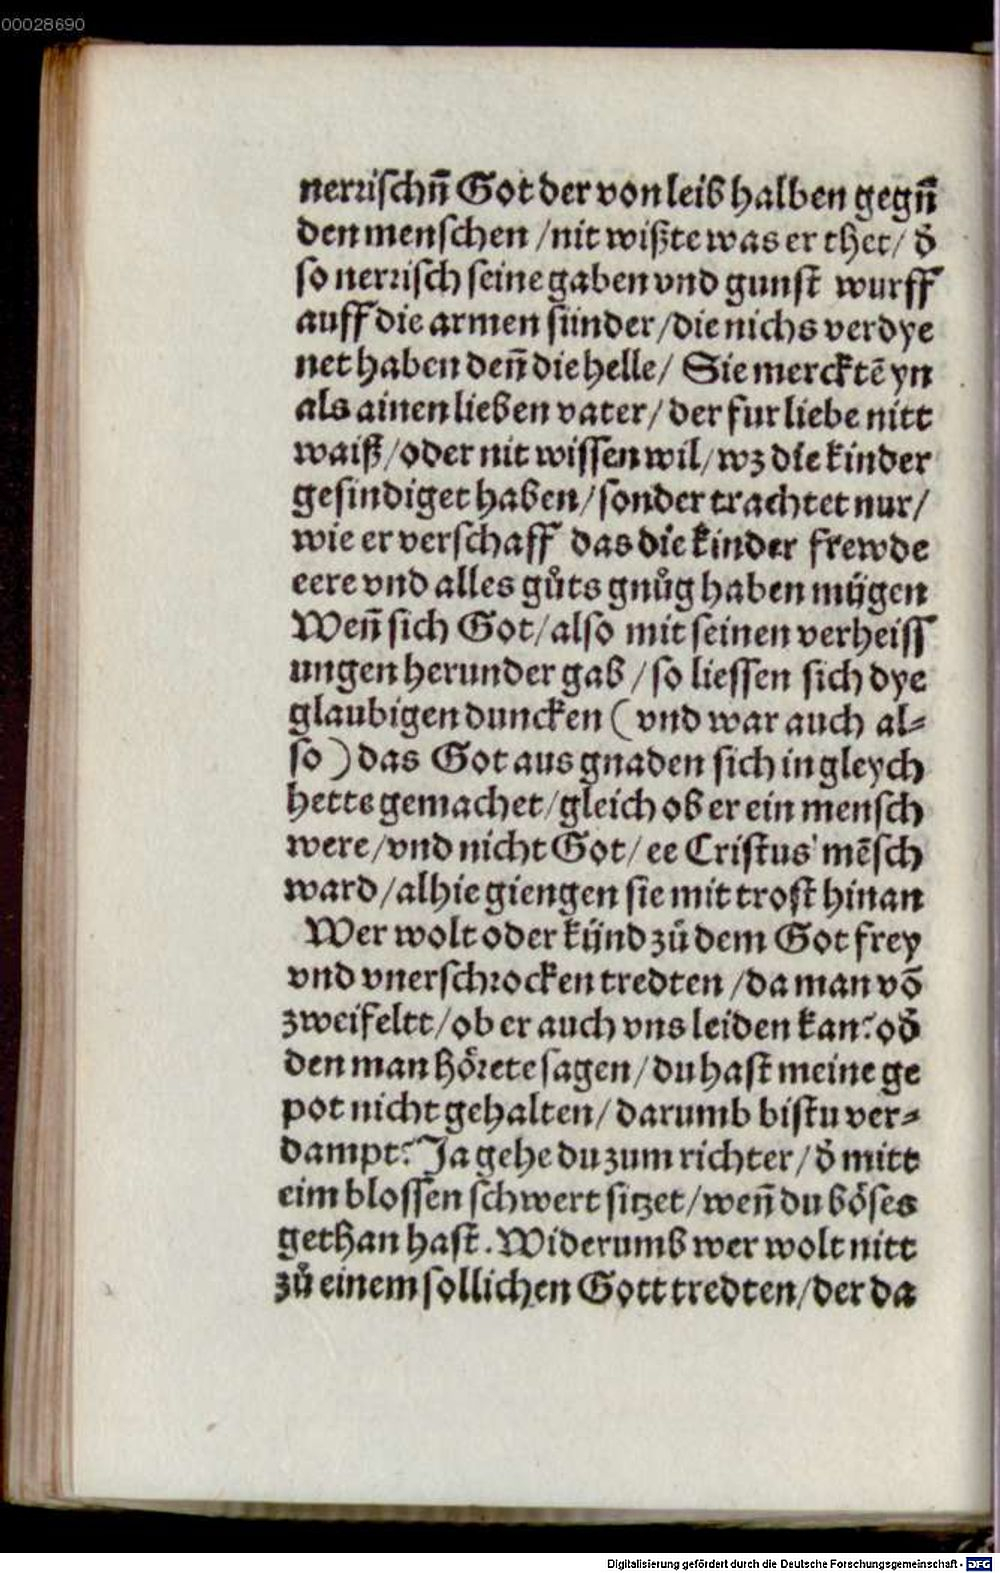 00028690
nerrischn̄ Got der von leib halben gegn̄
den menschen /nit wißte was er thet/ d̄
so nerrisch seine gaben vnd gunst wurff
auff die armen sünder/die nichs verdye
net haben den̄ die helle/ Sie mercktē yn
als ainen lieben vater/ der fur liebe nitt
waiß/oder nit wissen wil/wz die kinder
gesindiget haben/sonder trachtet nur/
wie er verschaff das die kinder frewde
eere vnd alles gůts gnůg haben mügen
Wen̄ sich Got/also mit seinen verheiss
ungen herunder gab /so liessen sich dye
glaubigen duncken (vnd war auch al⸗
so) das Got aus gnaden sich in gleych
hette gemachet/gleich ob er ein mensch
were/vnd nicht Got/ ee Cristus mēsch
ward/alhie giengen sie mit trost hinan
Wer wolt oder künd zů dem Got frey
vnd vnerschrocken tredten /da man vō
zweifeltt/ob er auch vns leiden kan? od̄
den man hörete sagen/du hast meine ge
pot nicht gehalten/ darumb bistu ver⸗
dampt? Ja gehe du zum richter/d̄ mitt
eim blossen schwert sitzet/wen̄ du böses
gethan hast. Widerumb wer wolt nitt
zů einem sollichen Gott tredten/der da
Digitalisierung gefördert durch die Deutsche Forschungsgemeinschaft - DFG